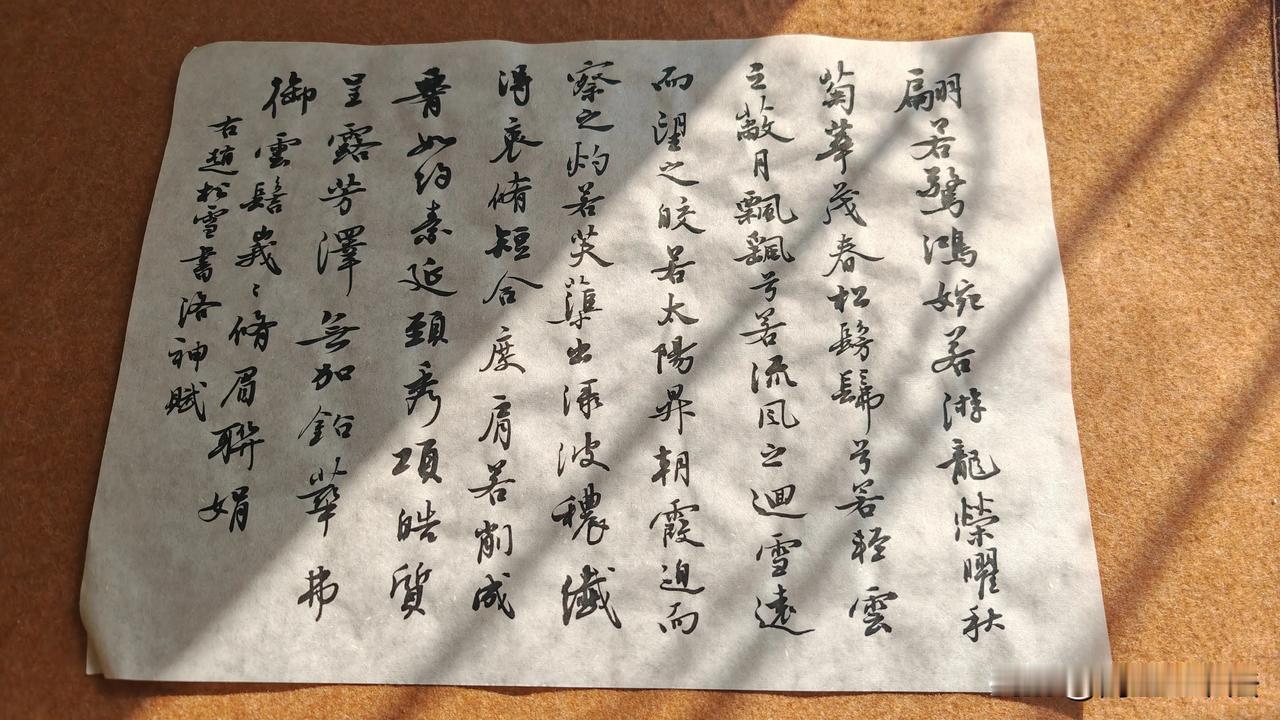 翩若驚鴻婉若游龍榮曜秋
菊華茂春松髣髴兮若輕雲
之蔽月飄飖兮若流風之迴雪遠
而望之皎若太陽昇朝霞迫而
察之灼若芙蕖出渌波穠纖
得衷脩短合度肩若削成
䏿如約素延頸秀項皓質
呈露芳澤無加鉛華弗
御雲髻峩〻脩眉聯娟
右趙松雪書洛神賦